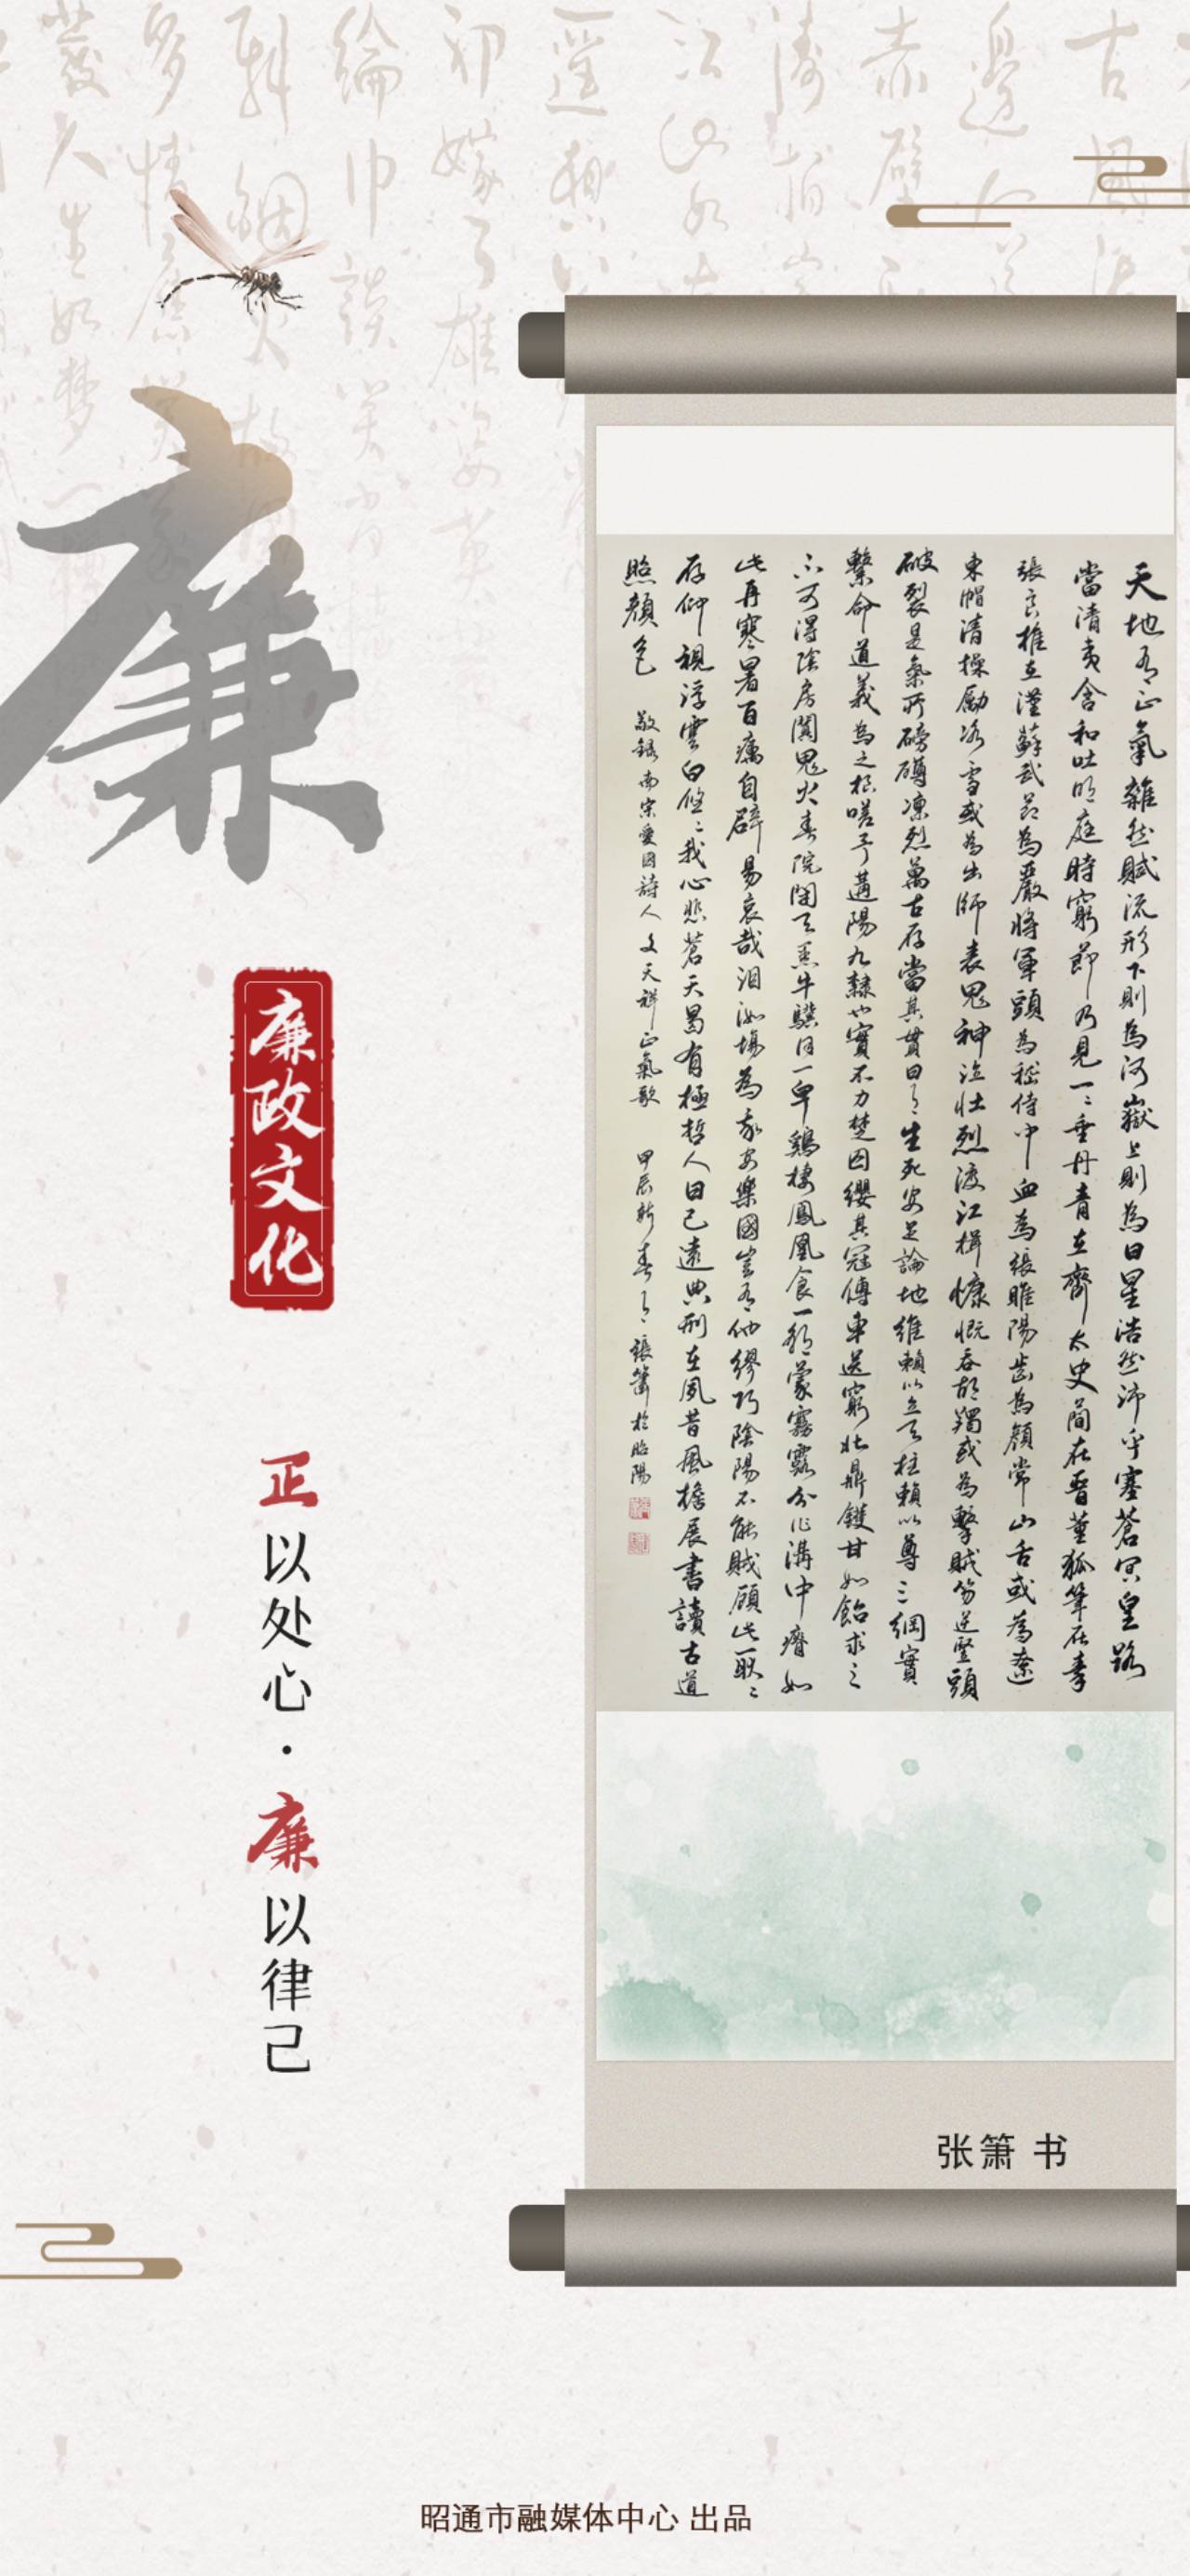 廉
廉政文化
正以处心·廉以律己
天地有正氣雜然賦流形下則為河嶽上則為日星浩然沛乎塞蒼冥皇路
當清夷含和吐明庭時窮節乃見一々垂丹青在齊太史簡在晉董狐筆在秦
張良椎在漢蘇武節為嚴將軍頭為嵇侍中血為張睢陽齒為顏常山舌或為遼
東帽清操勵冰雪或為出師表鬼神泣壯烈渡江楫慷慨吞胡羯或為擊賊笏逆豎頭
破裂是氣所磅礴凜烈萬古存當其貫日月生死安足論地維賴以立天柱賴以尊三綱實
繫命道義為之根嗟予遘陽九隸也實不力楚囚纓其冠傳車送窮北鼎鑊甘如飴求之
不可得陰房闃鬼火春院閟天黑牛驥同一皁鷄棲鳳凰食一朝蒙霧露分作溝中瘠如
此再寒暑百癘自辟易哀哉沮洳場為我安樂國豈有他繆巧陰陽不能賊顧此耿々
存仰視浮雲白悠々我心悲蒼天曷有極哲人日已遠典刑在夙昔風檐展書讀古道
照顏色 敬錄南宋愛國詩人文天祥正氣歌 甲辰新春 張簫於昭陽
张箫 书
昭通市融媒体中心 出品